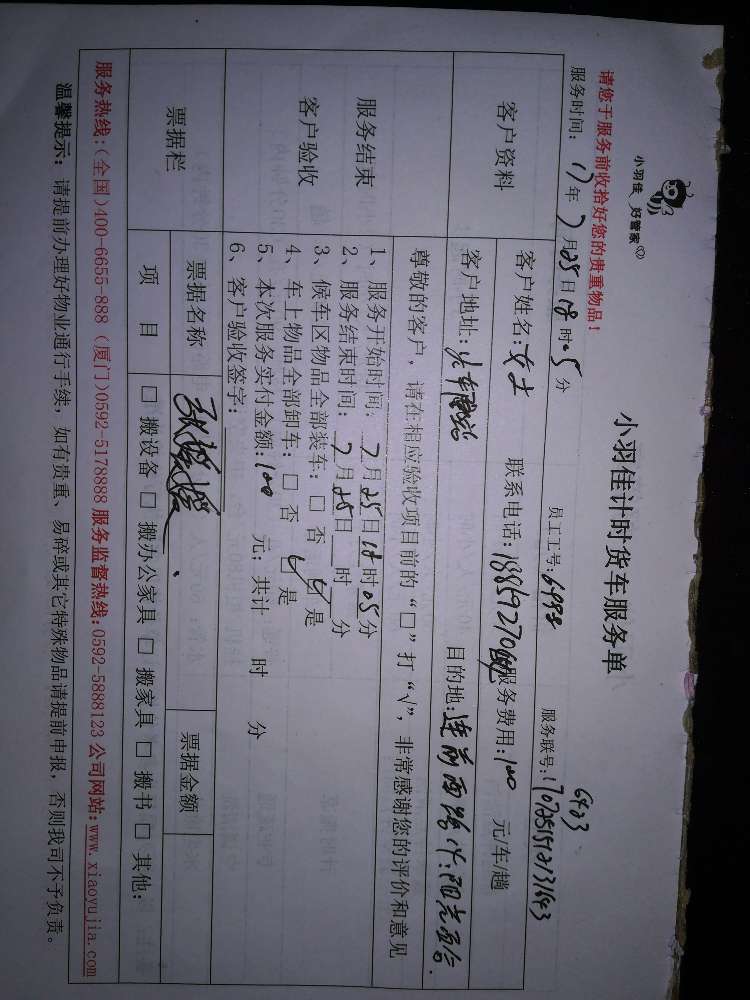 小羽佳 好管家
小羽佳计时货车服务单
请您于服务前收拾好您的贵重物品！
服务时间：17年7月25日18时05分 员工工号： 服务联号：
客户资料
客户姓名：女士 联系电话： 服务费用：100 元/车/趟
客户地址：火车 目的地：莲前西路 阳光
尊敬的客户，请在相应验收项目前的“□”打“√”，非常感谢您的评价和意见
服务结束
客户验收
1、服务开始时间：7月25日18时05分
2、服务结束时间：7月25日 时 分
3、候车区物品全部装车：□ 否 ☑ 是
4、车上物品全部卸车：□ 否 ☑ 是
5、本次服务实付金额：100 元；共计 时 分
6、客户验收签字：
票据栏
票据名称 票据金额
项 目 □ 搬设备 □ 搬办公家具 □ 搬家具 □ 搬书 □ 其他：
服务热线：(全国)400-6655-888 (厦门)0592-5178888 服务监督热线：0592-5888123 公司网站：www.xiaoyujia.com
温馨提示： 请提前办理好物业通行手续，如有贵重、易碎或其它特殊物品请提前申报，否则我司不予负责。